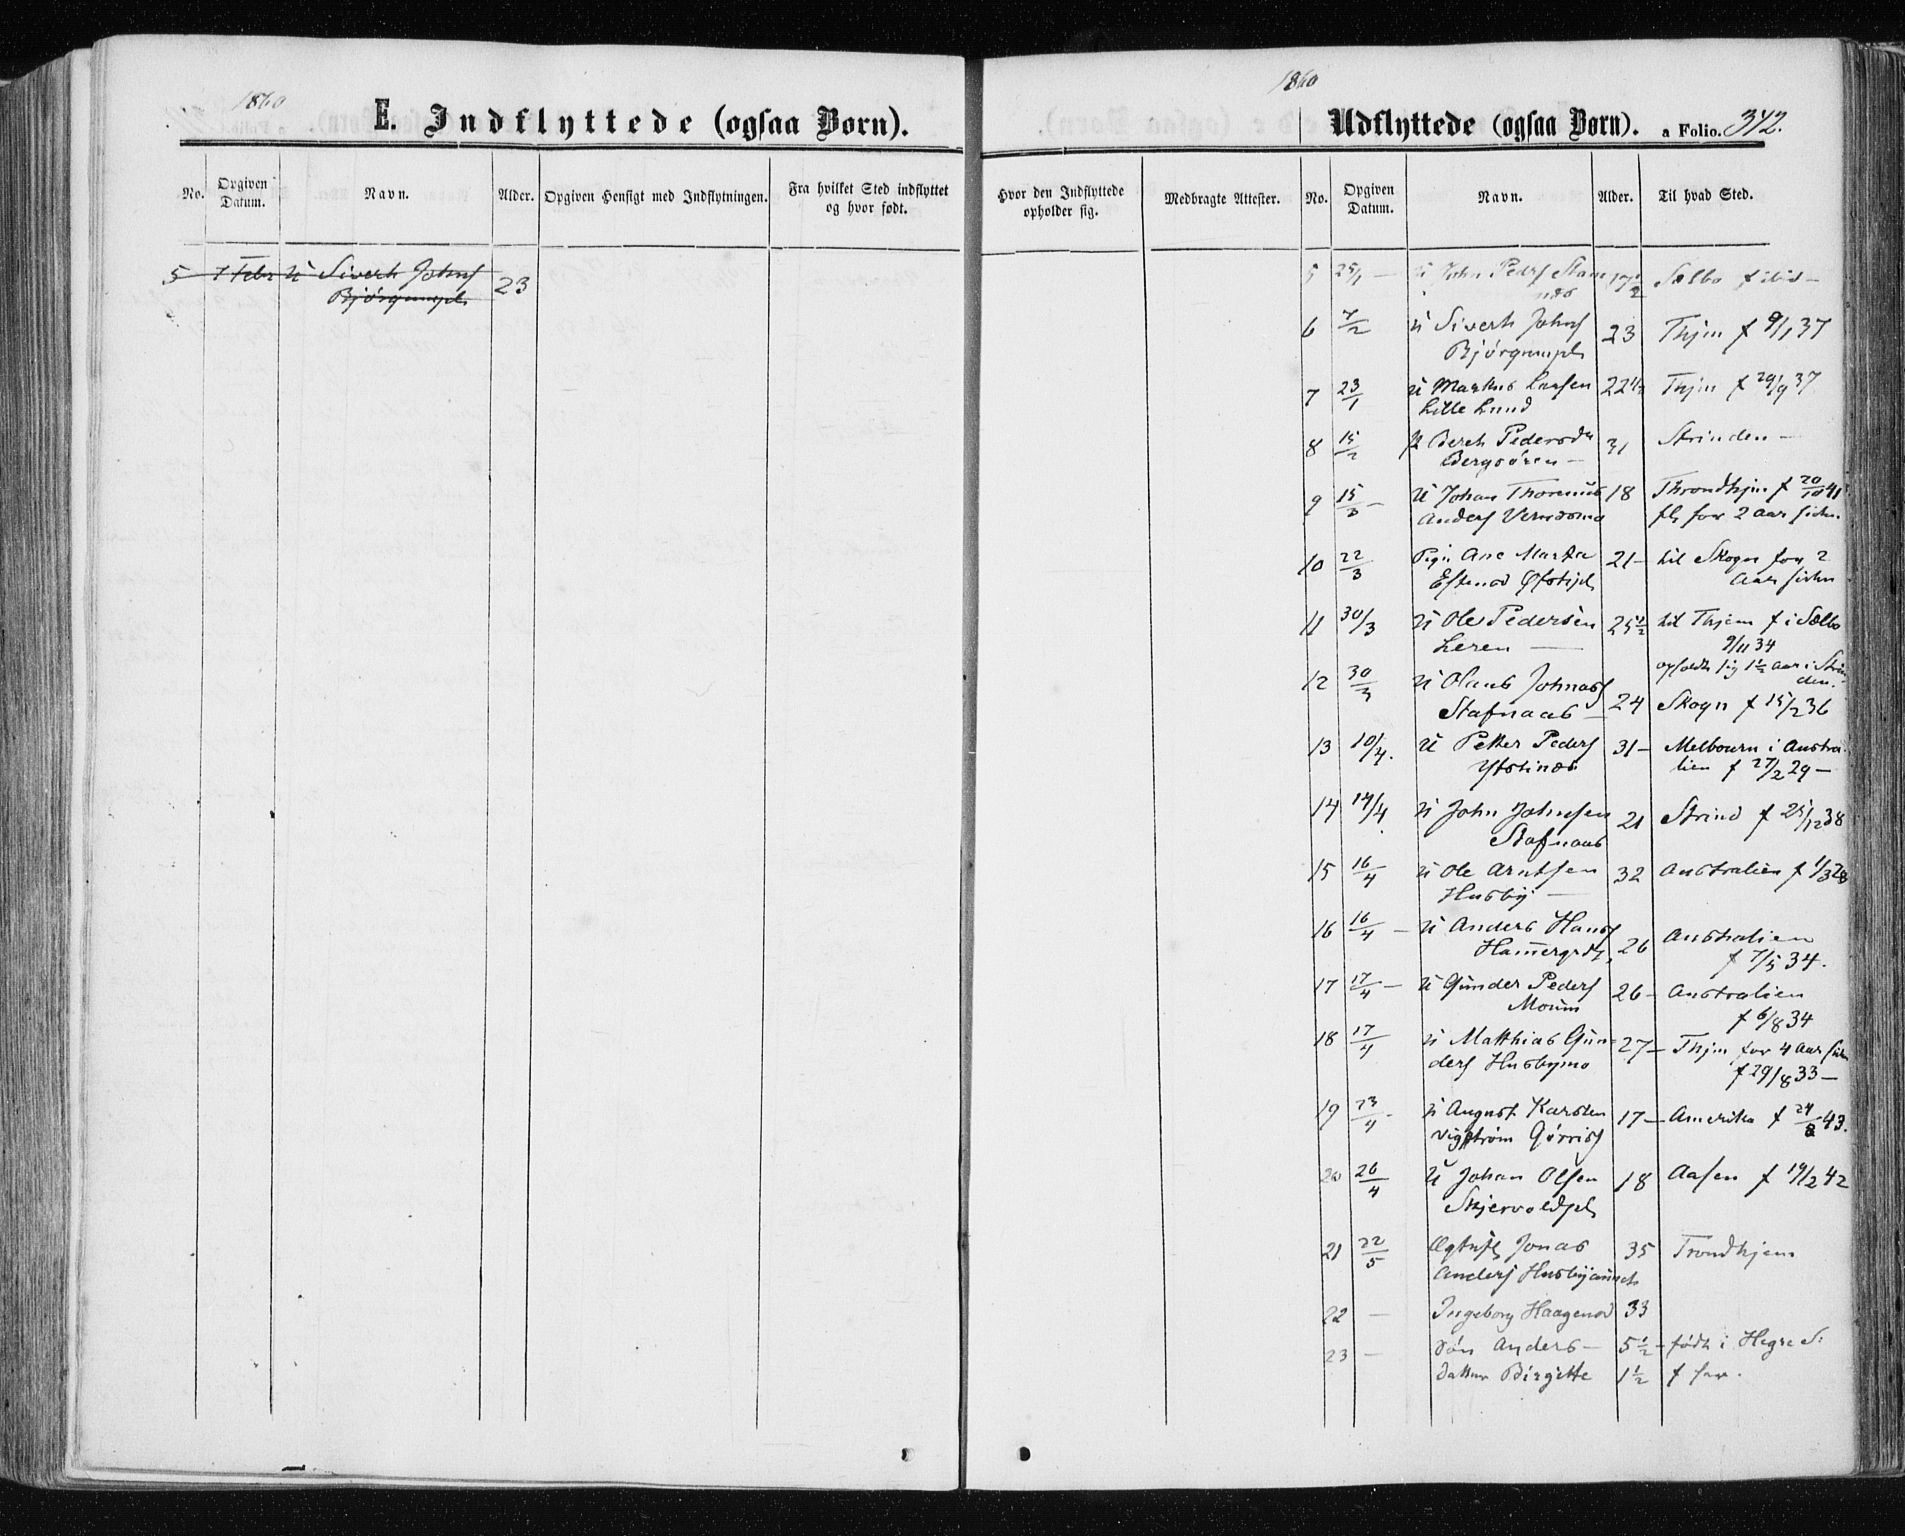 1860
E. Indflyttede (ogsaa Børn).
No.
Opgiven Datum.
Navn.
Alder.
Opgiven Hensigt med Indflytningen.
Fra hvilket Sted indflyttet og hvor født.
5 7 Febr U Sivert Johns 23
Bjørgumpl
1860
Udflyttede (ogsaa Børn). a Folio. 342.
Hvor den Indflyttede opholder sig.
Medbragte Attester.
No.
Opgiven Datum.
Navn.
Alder.
Til hvad Sted.
5 25/1 — U John Peders 17 1/2 Sælbo f ibid —
6 7/2 U Sivert Johns 23 Thjm f 9/1 37
Bjørgumpl
7 23/1 U Markus Larsen 22 1/2 Thjm f 29/9 37
Lille Lund
8 15/2 P Beret Pedersdr 31 Strinden —
Bergsören —
9 15/3 — U Johan Thomas 18 Throndhjm f 20/10 41
Anders fl for 2 aar siden
10 22/3 Pig. Ane Marta 21 — til Skogn for 2
Estensd Øfstipl Aar siden
11 30/3 U Ole Pedersen 25 1/2 til Thjem f i Sælbo
Leren — 9/11 34
opholdt sig 1 1/2 aar i Strin
den.
12 30/3 U Olaus Johnas
Stafnaas — 24 Skogn f 15/2 36
13 10/4. U Petter Peders 31 — Melbourn i Austra
Ystines lien f 27/2 29 —
14 14/4 U John Johnsen 21 Strind f 25/12 38
Stafnaas
15 16/4 U Ole Arntsen 32 Australien f 1/3 28
Husby —
16 16/4 — U Anders Hans 26 Australien
f 7/5 34.
17 17/4 — U Gunder Peders 26 — Australien
Moum f 6/8 34
18 17/4 U Matthias Gun= 27 — Thjm for 4 aar siden
ders Husbymo f 29/8 33 —
19 23/4 — U August Karsten 17 — Amerika f 24/8 43.
Vigstrøm Gørris
20 26/4 U Johan Olsen 18 Aasen f 19/2 42
Skjervoldpl
21 22/5 Jonas 35 Trondhjem
Anders
22 — Ingeborg Haagensd 33
23 — Søn Anders — 5 1/2 — født i Hegre S:
datter Birgitte 1 1/2 f her.